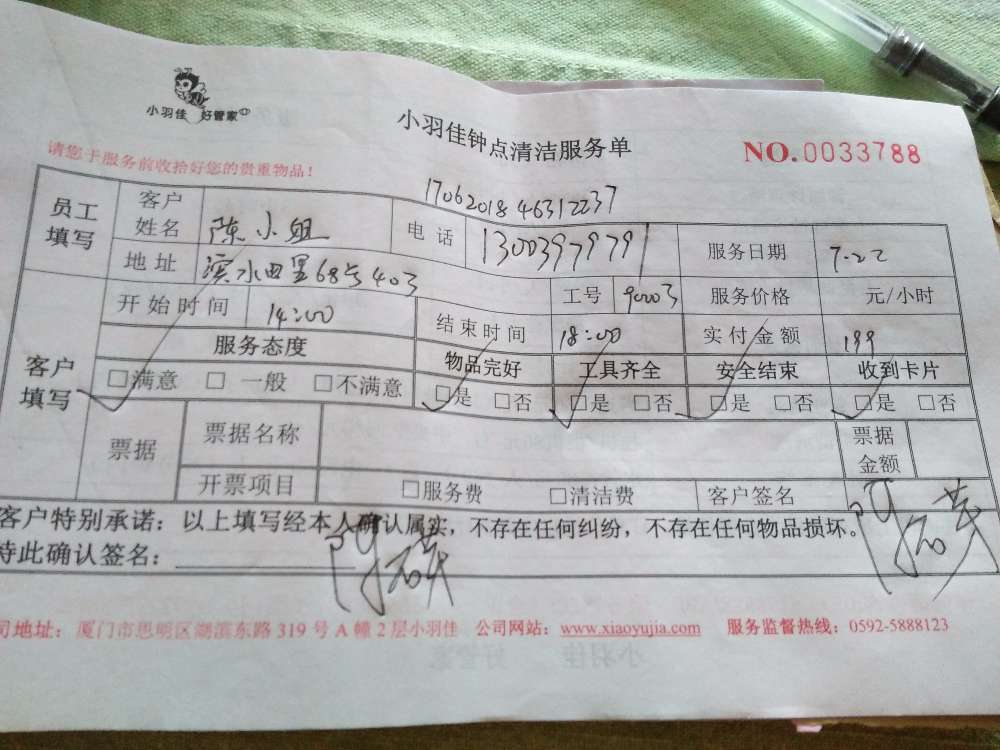 小羽佳 好管家
小羽佳钟点清洁服务单
NO.0033788
请您于服务前收拾好您的贵重物品!
1706201846312237
员工填写 客户姓名 陈小姐 电话 13003979791 服务日期 7.22
地址 滨水四里68号403 工号 服务价格 元/小时
客户填写 开始时间 14:00 结束时间 18:00 实付金额 199
服务态度 物品完好 工具齐全 安全结束 收到卡片
□满意 □一般 □不满意 □是 □否 □是 □否 □是 □否 □是 □否
票据 票据名称 票据金额
开票项目 □服务费 □清洁费 客户签名
客户特别承诺：以上填写经本人确认属实，不存在任何纠纷，不存在任何物品损坏。
特此确认签名：
司地址：厦门市思明区湖滨东路319号A幢2层小羽佳 公司网站：www.xiaoyujia.com 服务监督热线：0592-5888123